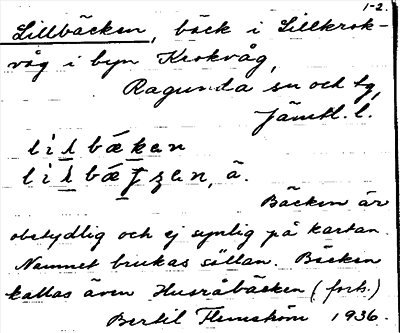 1-2.
Lillbäcken, bäck i Lillkrok-
våg i byn Krokvåg,
Ragunda sn och tg,
Jämtl. l.
obetydlig och ej synlig på kartan.
Bäcken är
Namnet brukas sällan. Bäcken
kallas även Husåbäcken (forts.)
Bertil Flemström 1936.